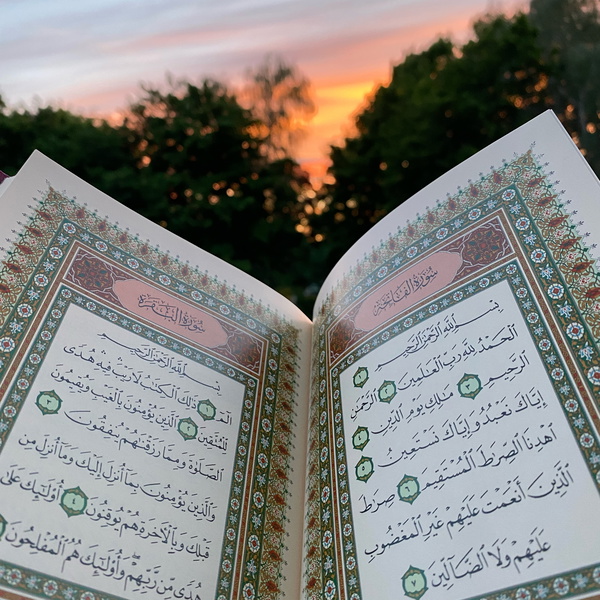 سُورَةُ الْفَاتِحَةِ
بِسْمِ اللَّهِ الرَّحْمَٰنِ الرَّحِيمِ ١
الْحَمْدُ لِلَّهِ رَبِّ الْعَالَمِينَ ٢ الرَّحْمَٰنِ
الرَّحِيمِ ٣ مَالِكِ يَوْمِ الدِّينِ ٤
إِيَّاكَ نَعْبُدُ وَإِيَّاكَ نَسْتَعِينُ ٥
اهْدِنَا الصِّرَاطَ الْمُسْتَقِيمَ ٦ صِرَاطَ
الَّذِينَ أَنْعَمْتَ عَلَيْهِمْ غَيْرِ الْمَغْضُوبِ
عَلَيْهِمْ وَلَا الضَّالِّينَ ٧
سُورَةُ الْبَقَرَةِ
بِسْمِ اللَّهِ الرَّحْمَٰنِ الرَّحِيمِ
الم ١ ذَٰلِكَ الْكِتَابُ لَا رَيْبَ فِيهِ هُدًى
لِلْمُتَّقِينَ ٢ الَّذِينَ يُؤْمِنُونَ بِالْغَيْبِ وَيُقِيمُونَ
الصَّلَوٰةَ وَمِمَّا رَزَقْنَاهُمْ يُنْفِقُونَ ٣
وَالَّذِينَ يُؤْمِنُونَ بِمَا أُنْزِلَ إِلَيْكَ وَمَا أُنْزِلَ مِنْ
قَبْلِكَ وَبِالْآخِرَةِ هُمْ يُوقِنُونَ ٤ أُولَٰئِكَ عَلَىٰ
هُدًى مِنْ رَبِّهِمْ وَأُولَٰئِكَ هُمُ الْمُفْلِحُونَ